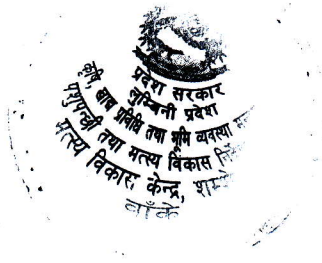 प्रदेश सरकार
लुम्बिनी प्रदेश
कृषि, खाद्य प्रविधि तथा भूमि व्यवस्था
पशुपन्छी तथा मत्स्य विकास
मत्स्य विकास केन्द्र,
बाँके